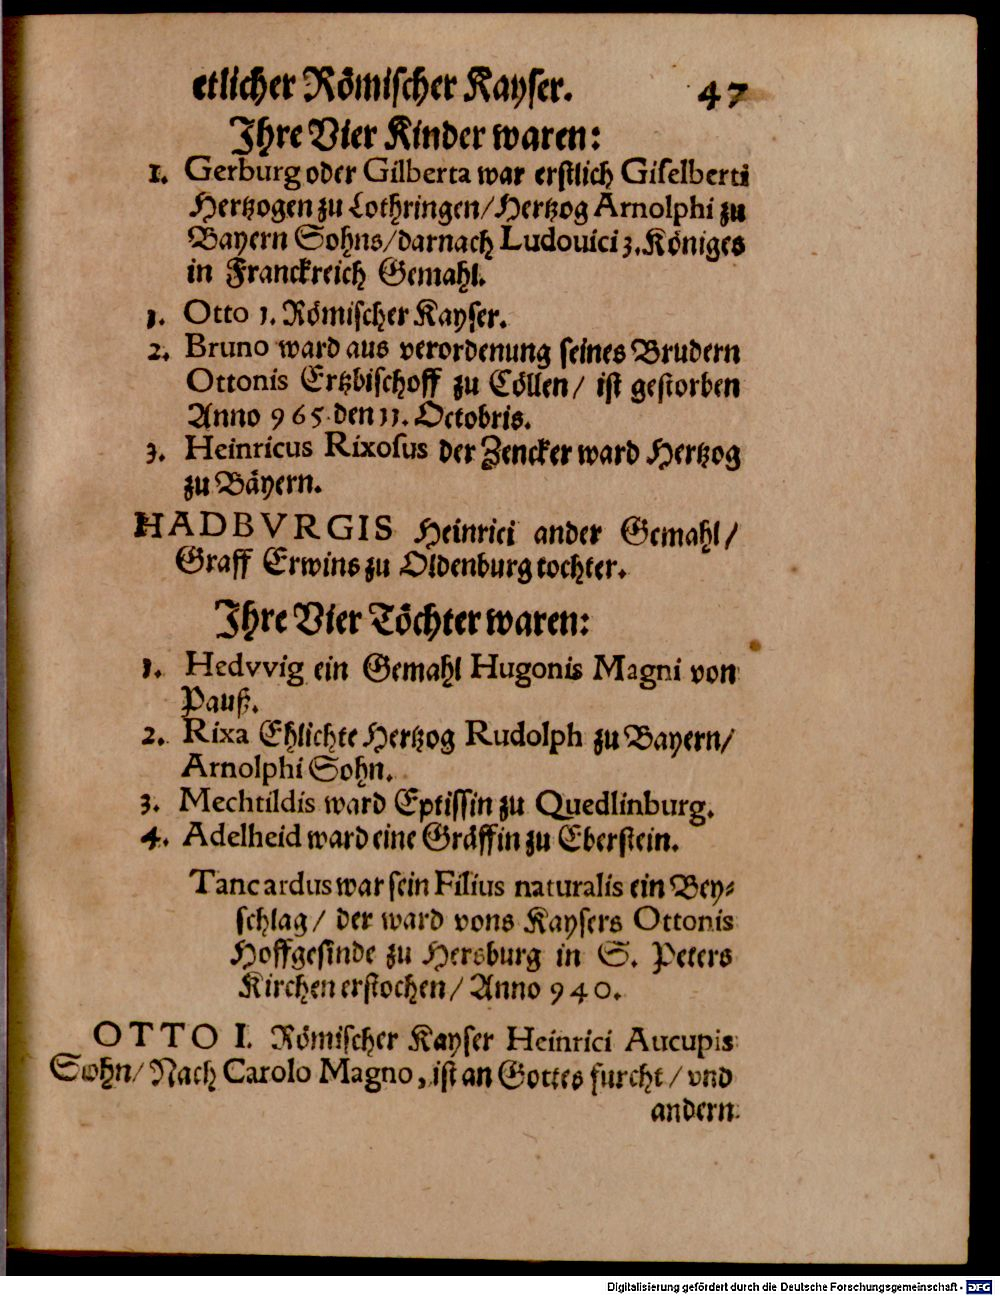 etlicher Römischer Kayser. 47
Ihre Vier Kinder waren:
1. Gerburg oder Gilberta war erstlich Giselberti
Hertzogen zu Lothringen/Hertzog Arnolphi zu
Bayern Sohns/darnach Ludouici 3. Königes
in Franckreich Gemahl.
1. Otto 1. Römischer Kayser.
2. Bruno ward aus verordenung seines Brudern
Ottonis Ertzbischoff zu Cöllen/ ist gestorben
Anno 965 den 11. Octobris.
3. Heinricus Rixosus der Zencker ward Hertzog
zu Bäyern.
HADBVRGIS Heinrici ander Gemahl/
Graff Erwins zu Oldenburg tochter.
Ihre Vier Töchter waren:
1. Hedvvig ein Gemahl Hugonis Magni von
Pauß.
2. Rixa Ehlichte Hertzog Rudolph zu Bayern/
Arnolphi Sohn.
3. Mechtildis ward Eptissin zu Quedlinburg.
4. Adelheid ward eine Gräffin zu Eberstein.
Tancardus war sein Filius naturalis ein Bey-
schlag/ der ward vons Kaysers Ottonis
Hoffgesinde zu Hersburg in S. Peters
Kirchen erstochen/ Anno 940.
OTTO I. Römischer Kayser Heinrici Aucupis
Sohn/ Nach Carolo Magno, ist an Gottes furcht/ vnd
andern
Digitalisierung gefördert durch die Deutsche Forschungsgemeinschaft - DFG